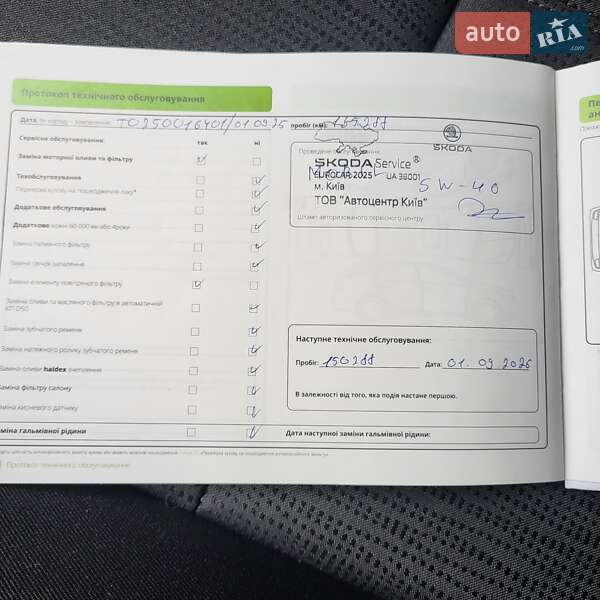 auto RIA.com
Протокол технічного обслуговування
Дата, № наряду – замовлення: TO250016401/01.09.25 пробіг (км):
Сервісне обслуговування: так ні
Заміна моторної оливи та фільтру
Техобслуговування
Перевірка кузову на пошкодження лаку*
Додаткове обслуговування
Додаткове кожні 60 000 км або 4роки
Заміна паливного фільтру
Заміна свічок запалення
Заміна елементу повітряного фільтру
Заміна оливи та масляного фільтру в автоматичній
КП DSG
Заміна зубчатого ременя
Заміна натяжного ролику зубчатого ременя
Заміна оливи haldex зчеплення
Заміна фільтру салону
Заміна кисневого датчику
Заміна гальмівної рідини
Протокол технічного обслуговування
ŠKODA
Проведене обслуговування:
ŠKODA Service®
EUROCAR 2025 UA 36001
м. Київ 5W-40
ТОВ "Автоцентр Київ"
Штамп авторизованого сервісного центру
Наступне технічне обслуговування:
Пробіг: 150288 Дата: 01.09.2026
В залежності від того, яка подія настане першою.
Дата наступної заміни гальмівної рідини: